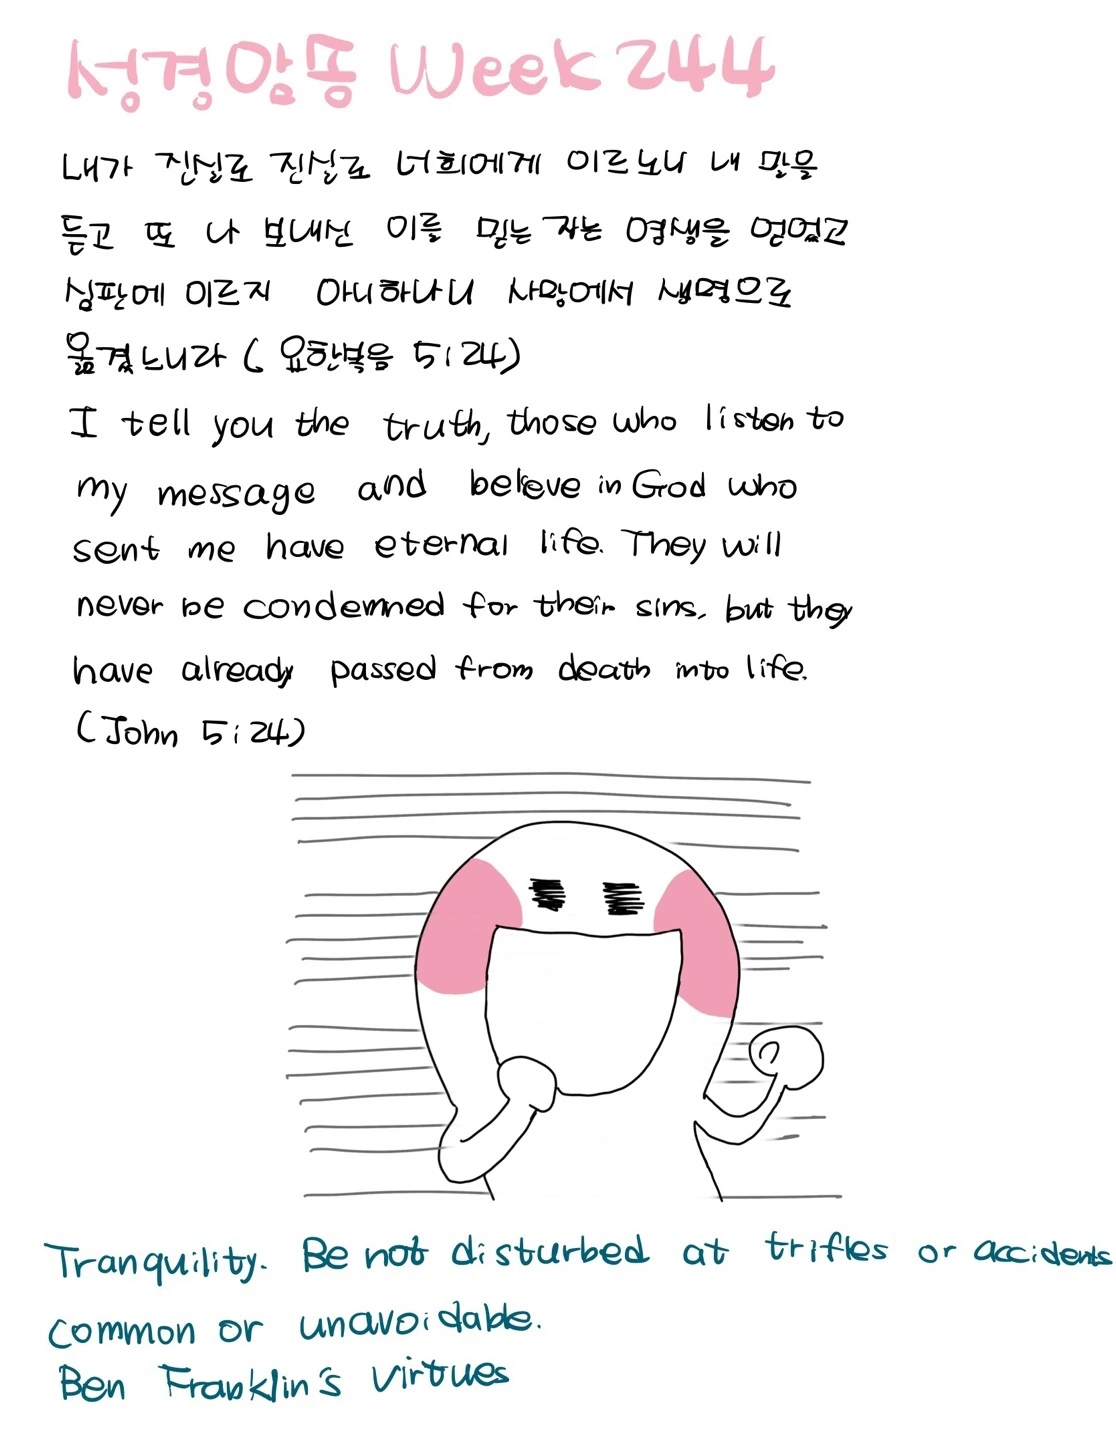 성경암똥 Week 244
내가 진실로 진실로 너희에게 이르노니 내 말을
듣고 또 나 보내신 이를 믿는 자는 영생을 얻었고
심판에 이르지 아니하나니 사망에서 생명으로
옮겼느니라 (요한복음 5:24)
I tell you the truth, those who listen to
my message and believe in God who
sent me have eternal life. They will
never be condemned for their sins, but they
have already passed from death into life.
(John 5:24)
Tranquility. Be not disturbed at trifles or accidents
common or unavoidable.
Ben Franklin's virtues